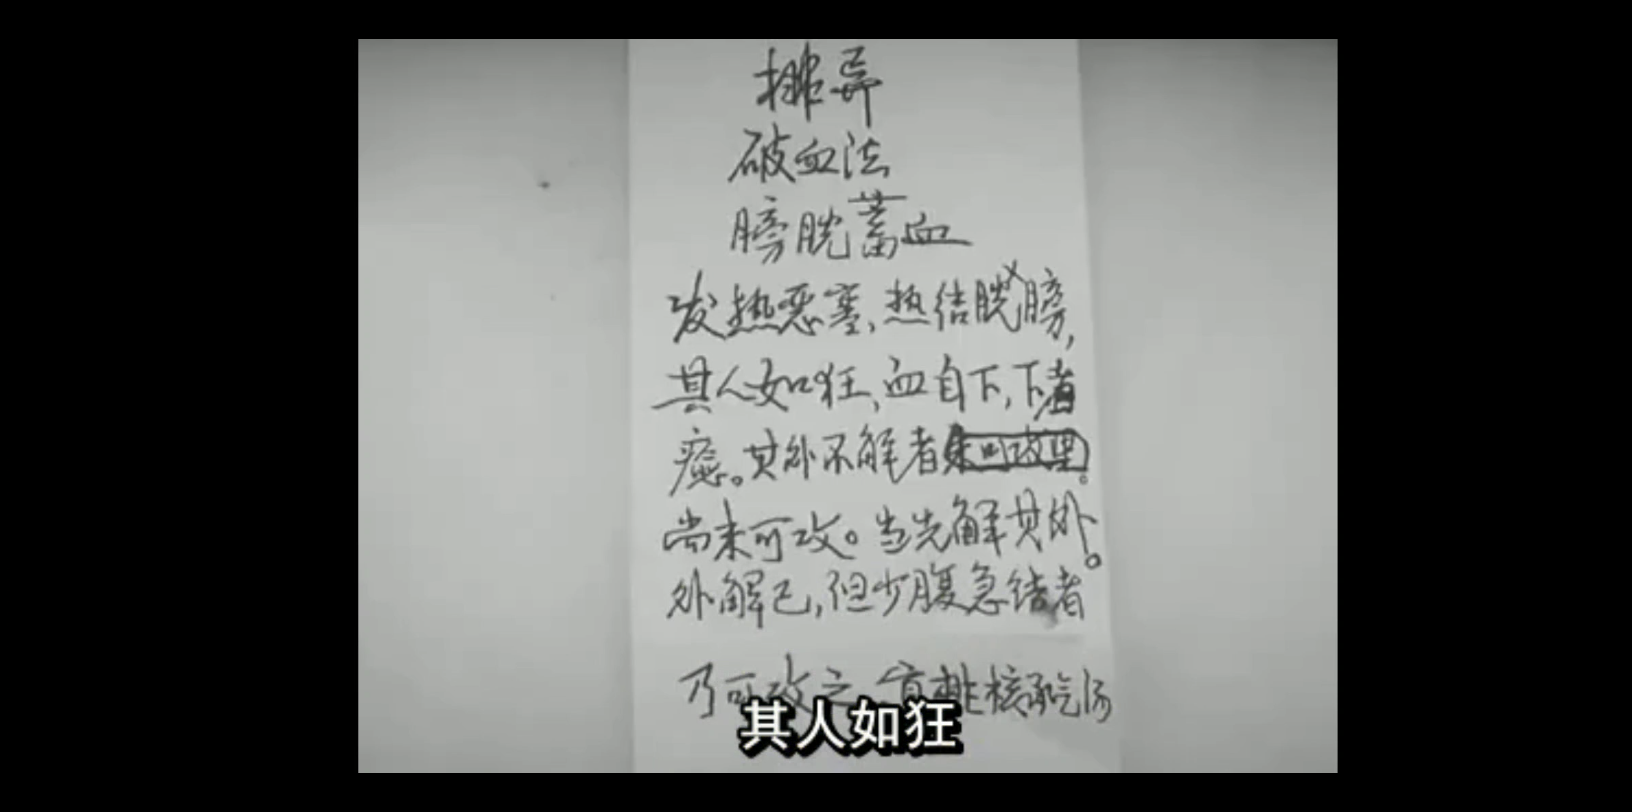 排异
破血法
膀胱蓄血
发热恶寒,热结胱膀,
其人如狂,血自下,下者
愈。其外不解者
尚未可攻。当先解其外。
外解已,但少腹急结者
乃可攻之,宜桃核承气汤
其人如狂